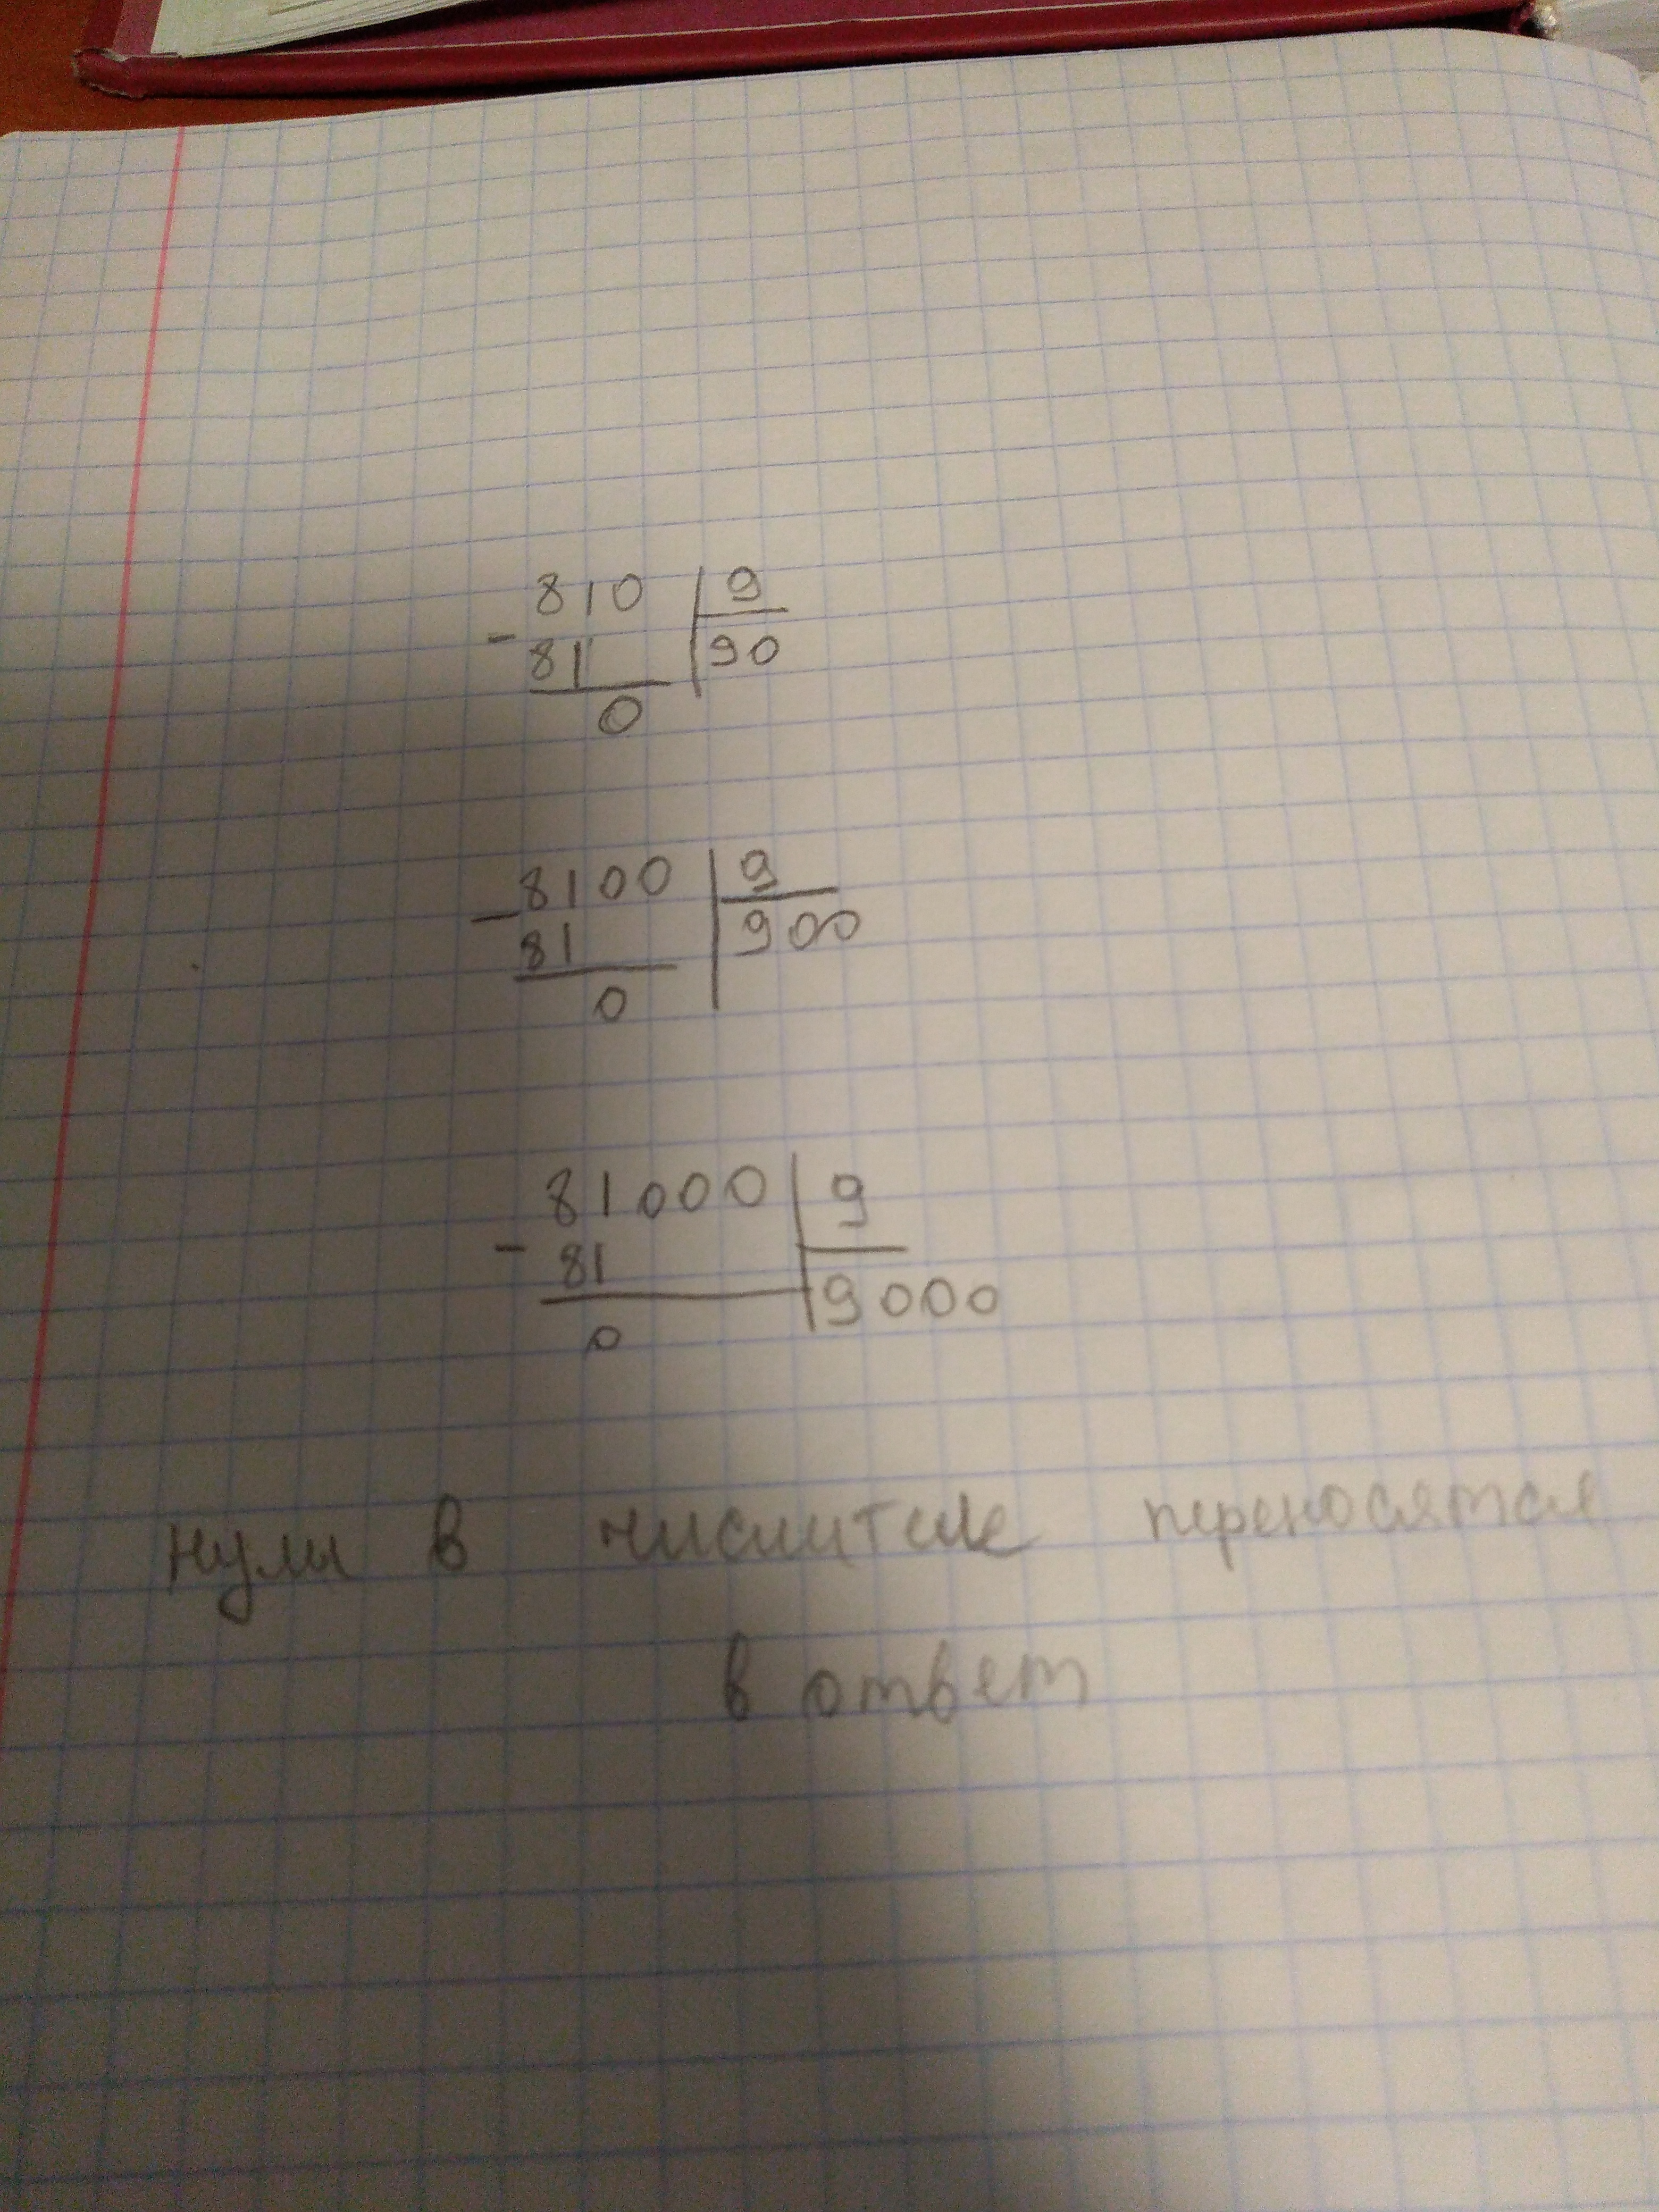 810 | 9
- 81 | 90
0
8100 | 9
- 81 | 900
0
81000 | 9
- 81 | 9000
0
нули в числителе переносятся
в ответ